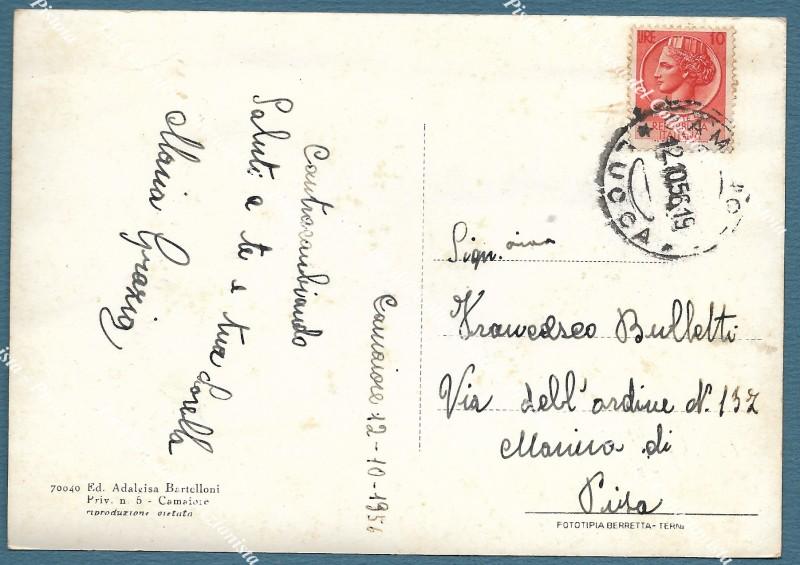 Camaiore 12-10-1956
Contracambiando
Saluti a te e tua Sorella
Maria Grazia
70040 Ed. Adalgisa Bartelloni
Priv. n. 5 - Camaiore
riproduzione vietata
LIRE 10
REPUBBLICA
ITALIANA
LUCCA
12.10.56.19
Sign.
Francesco Bulletti
Via dell'ordine N. 137
Marina di
Pisa
FOTOTIPIA BERRETTA - TERNI